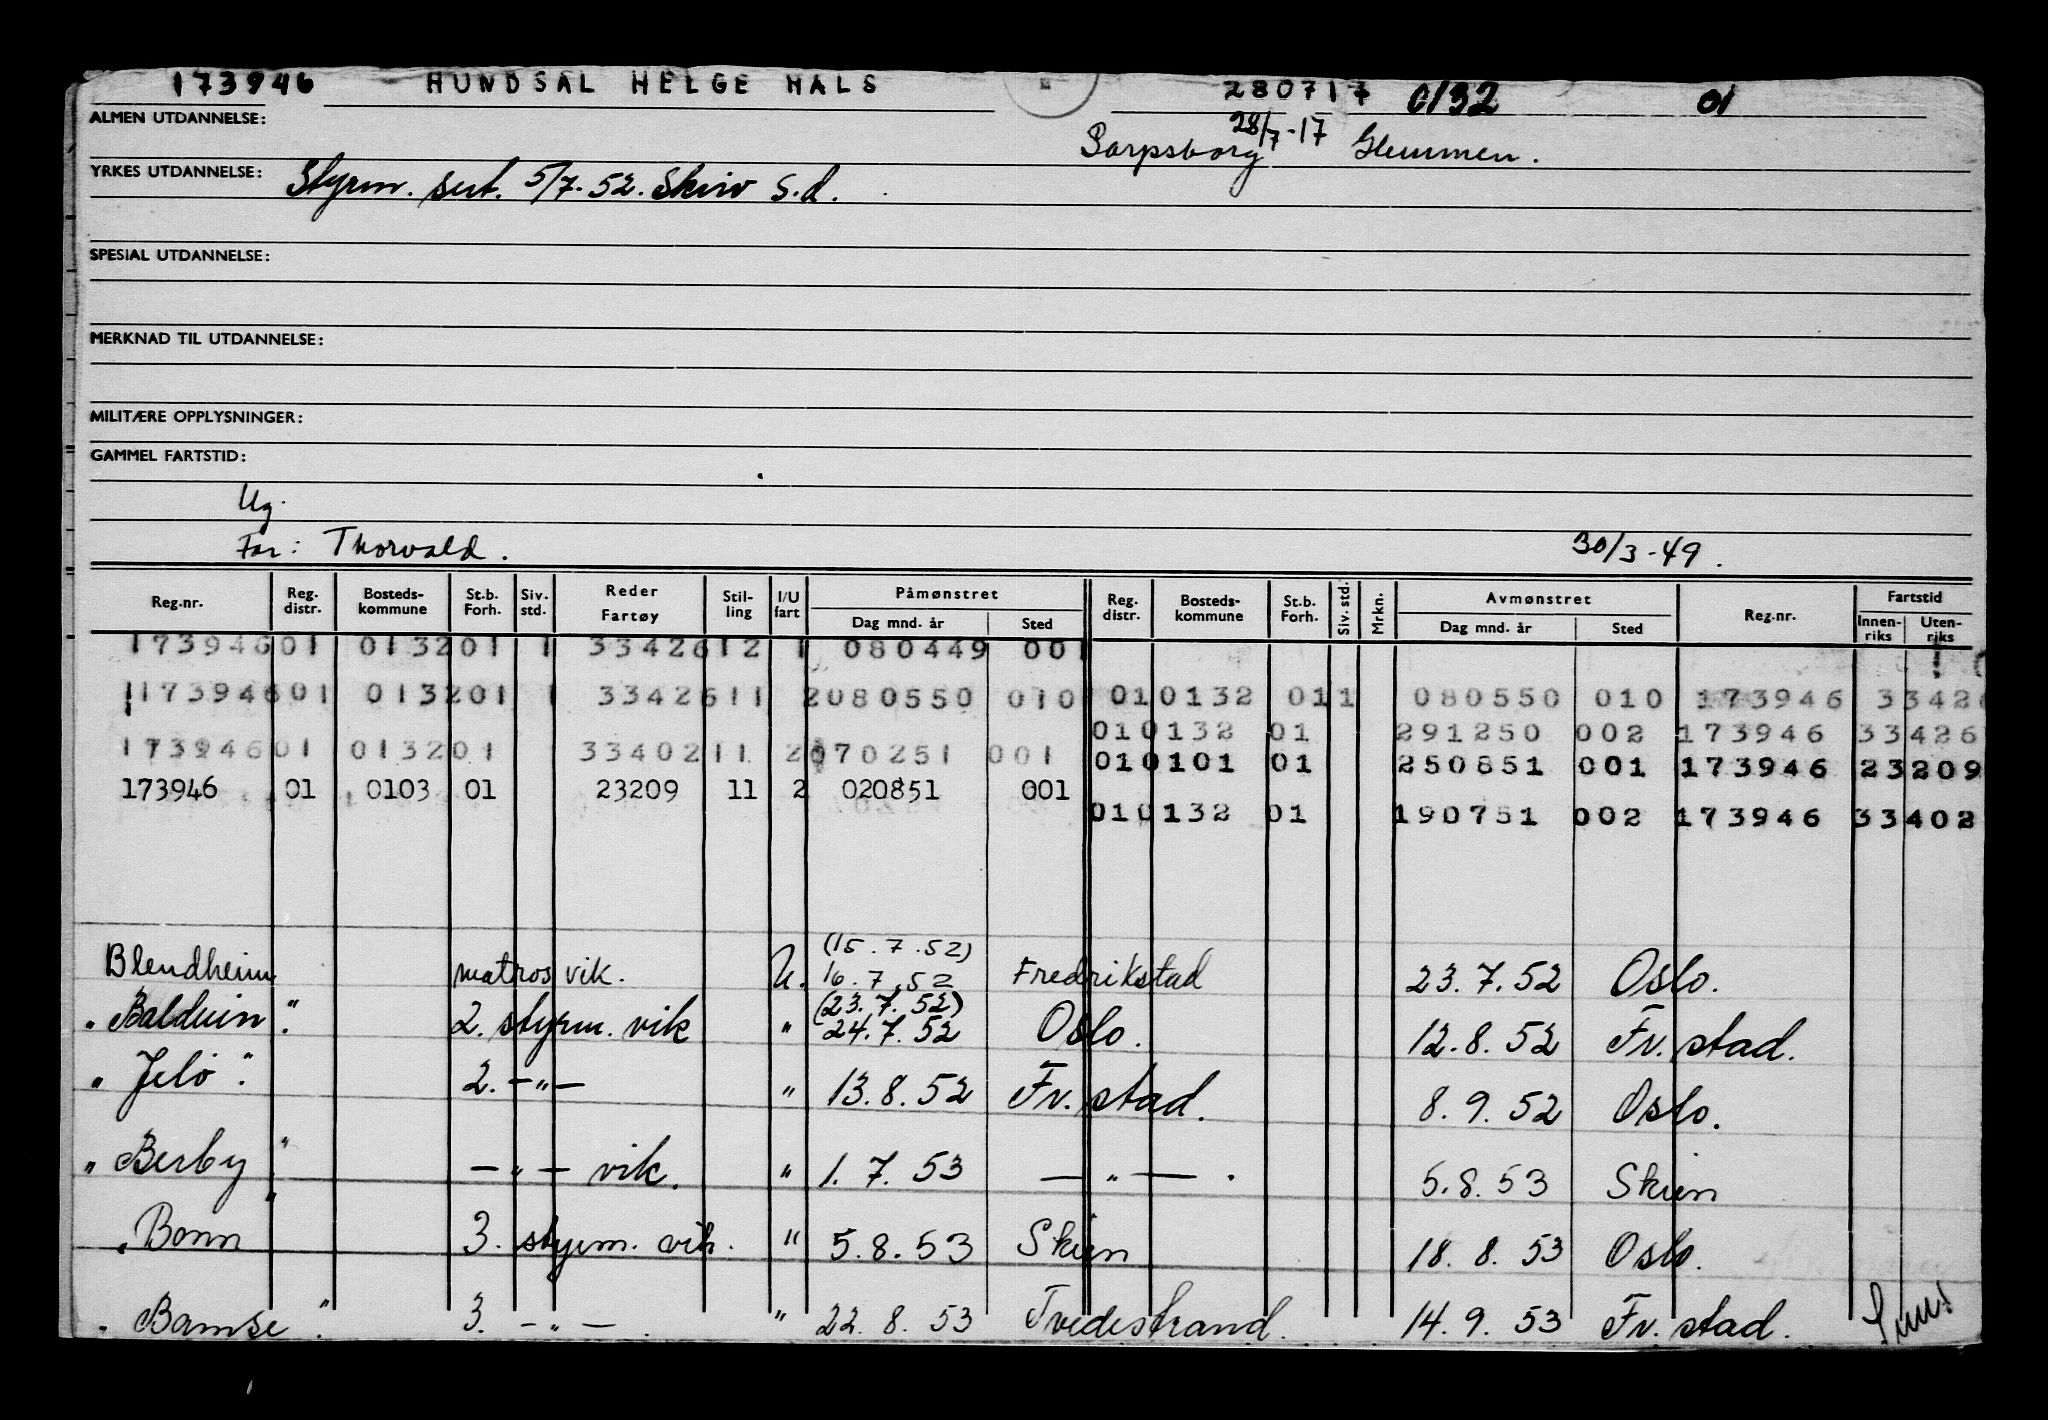 173946 HUNDSAL HELGE HALS 280717 0132 01
ALMEN UTDANNELSE: 28/7-17
Sarpsborg Glemmen.
YRKES UTDANNELSE: Styrm. sert. 5/7-52. Skiw S.d.
SPESIAL UTDANNELSE:
MERKNAD TIL UTDANNELSE:
MILITÆRE OPPLYSNINGER:
GAMMEL FARTSTID:
Ug.
Far: Thorvald. 30/3-49.
Reg.nr. Reg. distr. Bosteds-kommune St.b. Forh. Siv. std. Reder Fartøy Stil-ling I/U fart Påmønstret Dag mnd. år Sted Reg. distr. Bosteds-kommune St.b. Forh. Siv. std. Mrkn. Avmønstret Dag mnd. år Sted Reg.nr. Fartstid Innen-riks Uten-riks
173946 01 0132 01 1 33426 12 1 080449 001
173946 01 0132 01 1 33426 11 2 080550 010 01 0132 01 1 080550 010 173946 3342
01 0132 01 291250 002 173946 33426
173946 01 0132 01 33402 11 2 070251 001 01 0101 01 250851 001 173946 23209
173946 01 0103 01 23209 11 2 020851 001
01 0132 01 190751 002 173946 33402
(15.7.52)
Blendheim matros vik. U. 16.7.52 Fredrikstad 23.7.52 Oslo.
(23.7.52)
"Balduin". 2. styrm. vik " 24.7.52 Oslo. 12.8.52 Fr.stad.
"Jelö". 2. —"— " 13.8.52 Fr.stad. 8.9.52 Oslo.
"Berby" —"— vik. " 1.7.53 —"—. 5.8.53 Skien
"Bonn" 3. styrm. vik. " 5.8.53 Skien 18.8.53 Oslo.
"Bamse". 3. —"—. " 22.8.53 Tvedestrand. 14.9.53 Fr.stad.